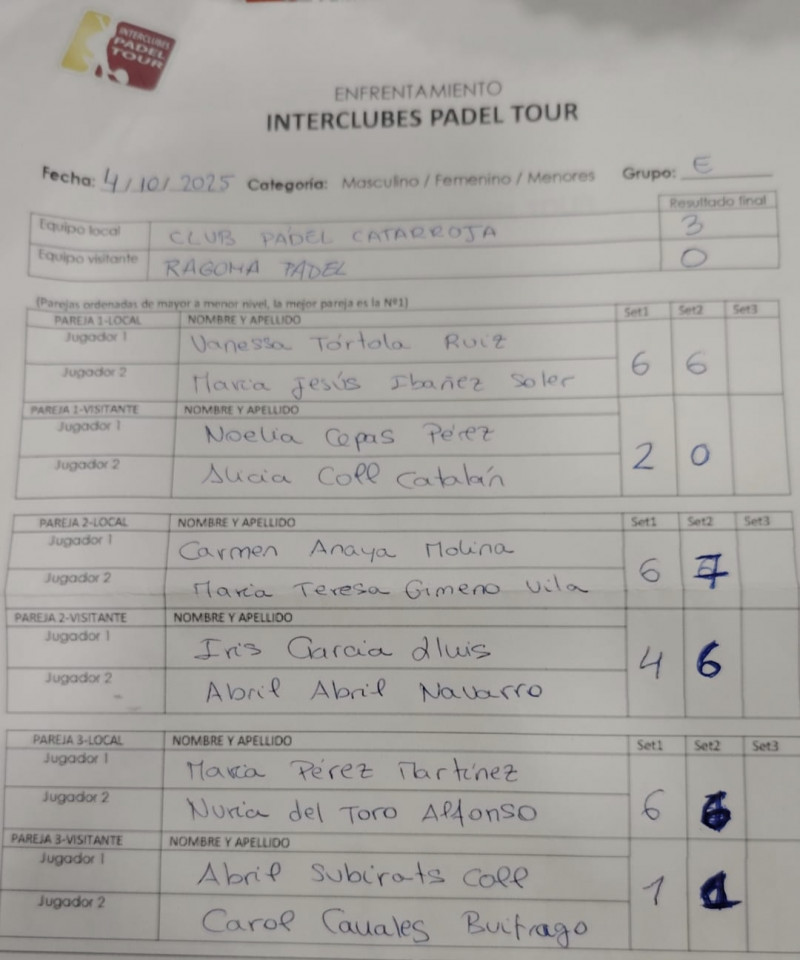 INTERCLUBES
PADEL
TOUR
ENFRENTAMIENTO
INTERCLUBES PADEL TOUR
Fecha: 4/10/2025 Categoría: Masculino / Femenino / Menores Grupo: E
Resultado final
Equipo local CLUB PÁDEL CATARROJA 3
Equipo visitante RAGOMA PADEL 0
(Parejas ordenadas de mayor a menor nivel, la mejor pareja es la Nº1)
PAREJA 1-LOCAL NOMBRE Y APELLIDO Set1 Set2 Set3
Jugador 1 Vanessa Tórtola Ruiz
6 6
Jugador 2 Maria Jesús Ibañez Soler
PAREJA 1-VISITANTE NOMBRE Y APELLIDO
Jugador 1 Noelia Cepas Pérez
2 0
Jugador 2 Alicia Coll Catalán
PAREJA 2-LOCAL NOMBRE Y APELLIDO Set1 Set2 Set3
Jugador 1 Carmen Anaya Molina
6 7
Jugador 2 Maria Teresa Gimeno Vila
PAREJA 2-VISITANTE NOMBRE Y APELLIDO
Jugador 1 Iris Garcia Lluis
4 6
Jugador 2 Abril Abril Navarro
PAREJA 3-LOCAL NOMBRE Y APELLIDO Set1 Set2 Set3
Jugador 1 Maria Pérez Martínez
6
Jugador 2 Nuria del Toro Alfonso
PAREJA 3-VISITANTE NOMBRE Y APELLIDO
Jugador 1 Abril Subirats Coll
1 1
Jugador 2 Carol Cauales Buitrago